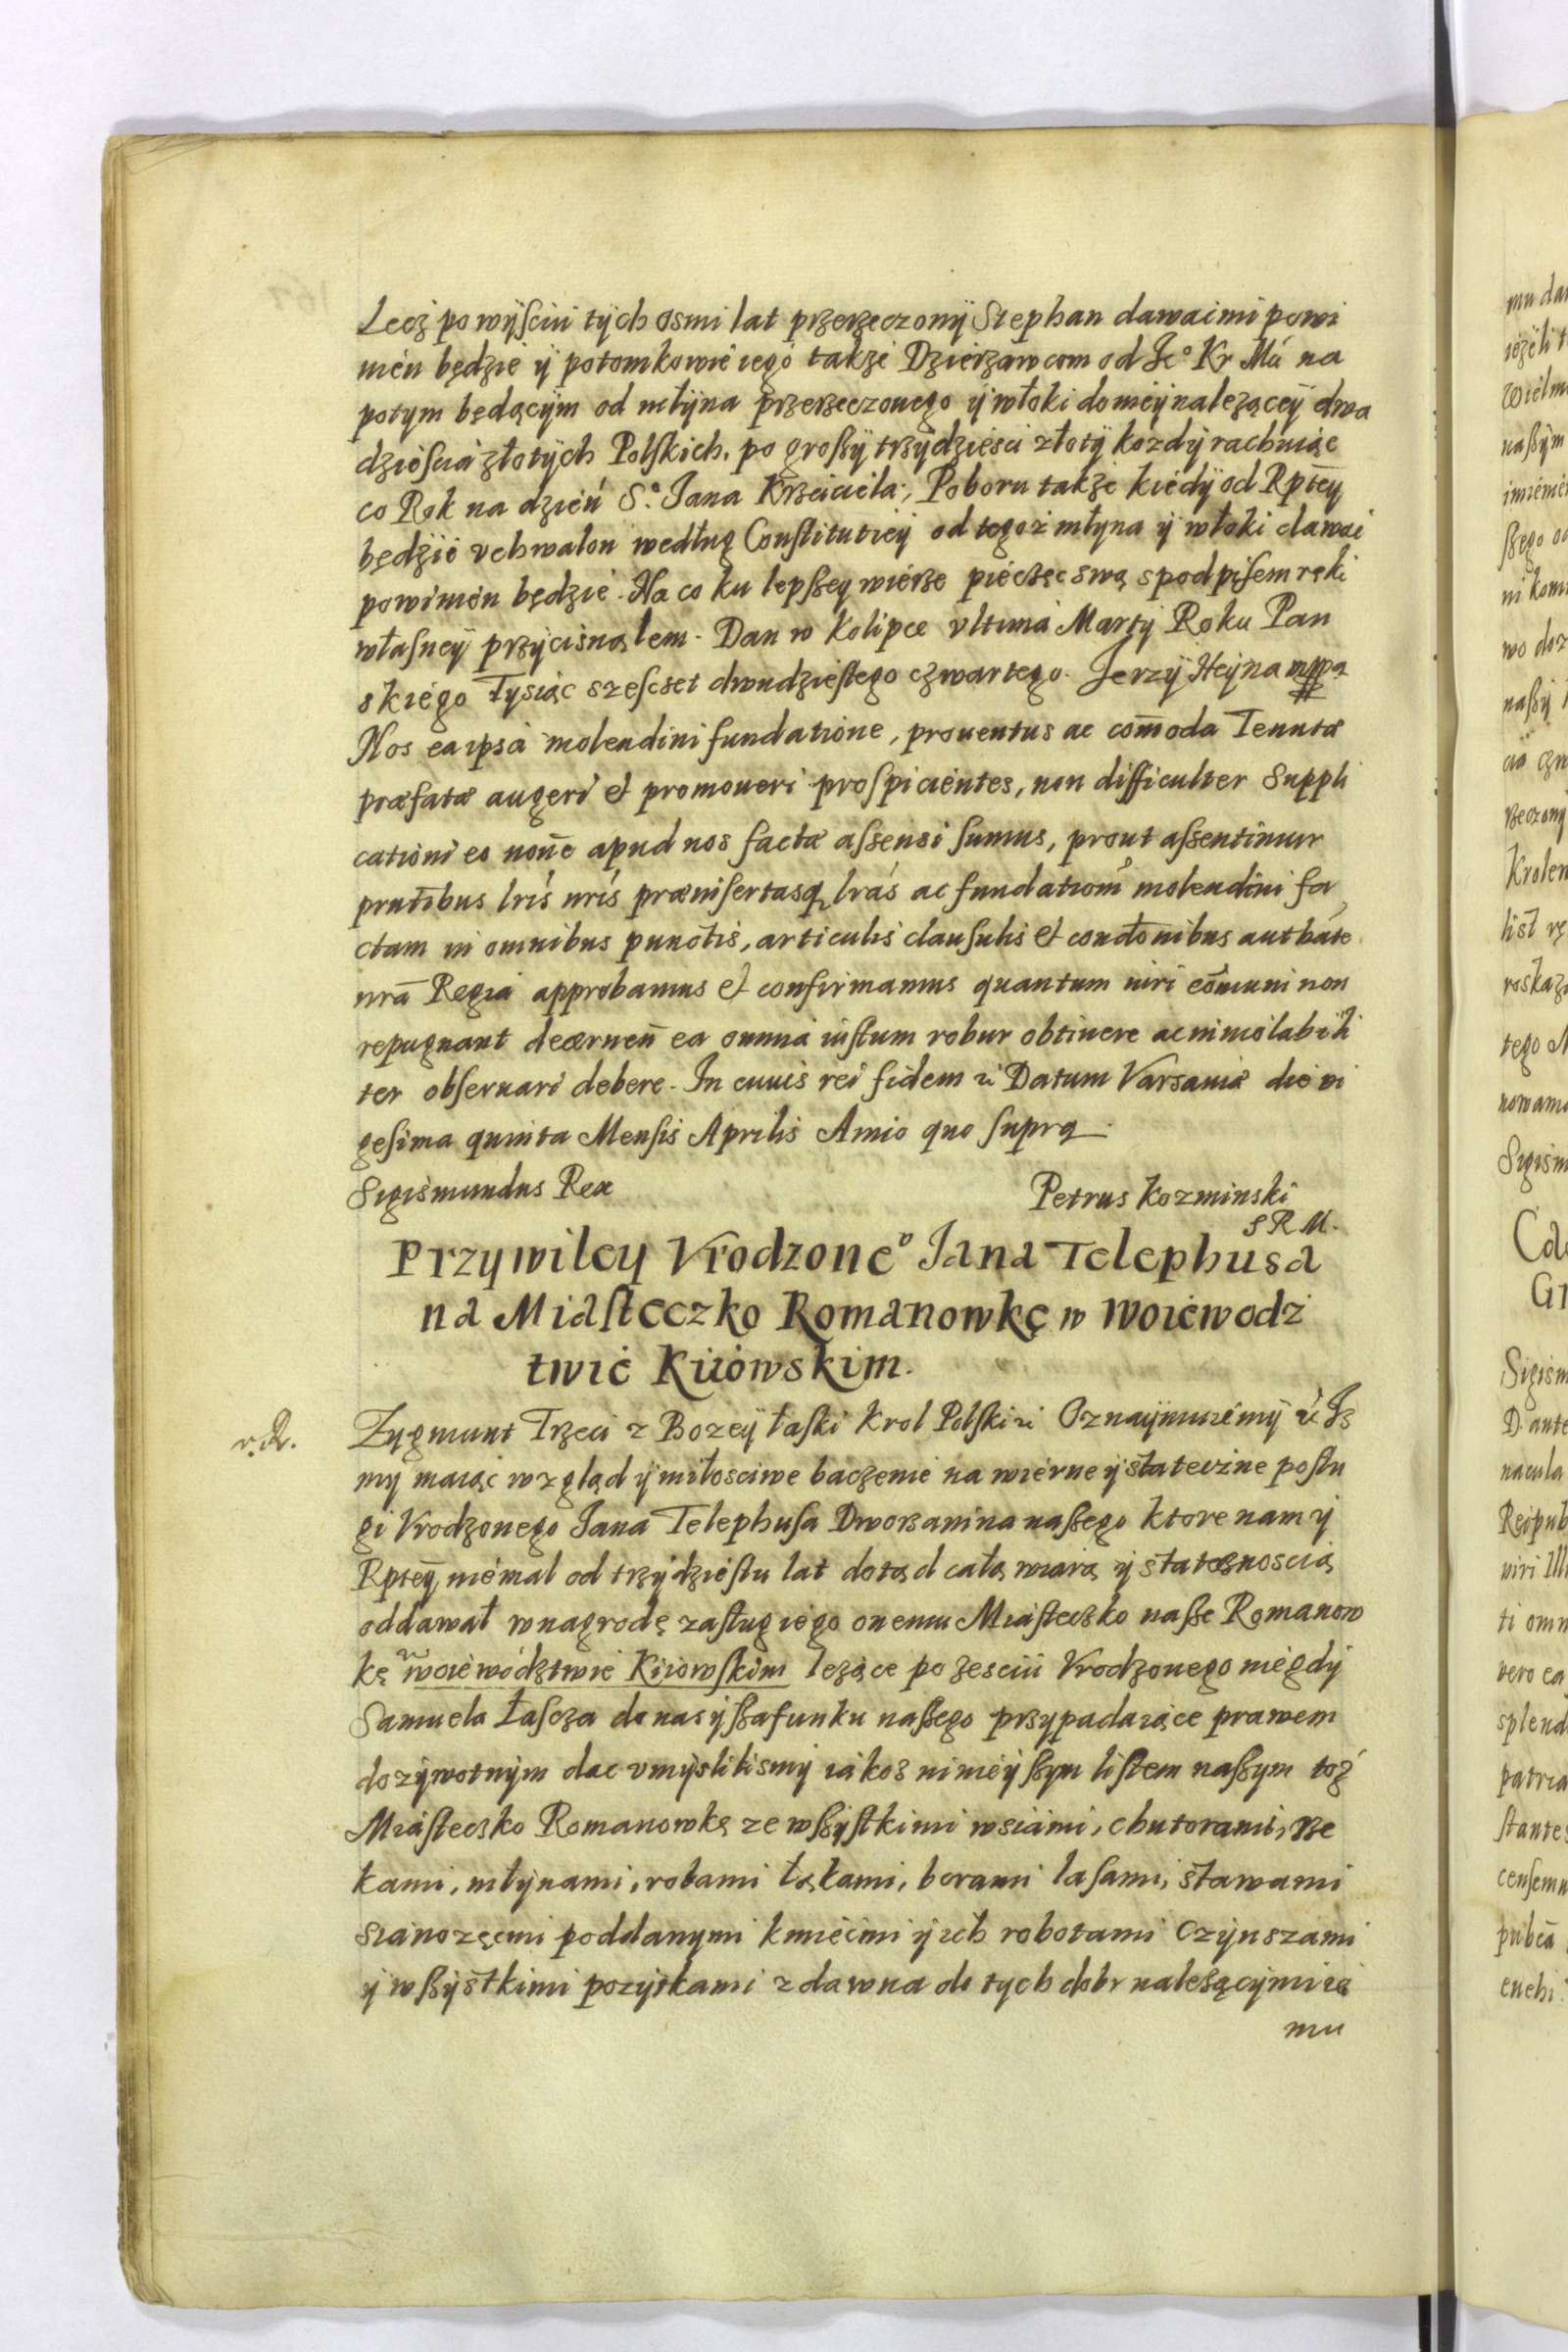 Lecz po wyſciu tych osmi lat przerzeczony Stephan dawac mi powi
nien będzie y potomkowie iego także Dzierzawcom od Je° Kr Mći na
potym będącÿm od młÿna przerzeczonego ÿ włoki do nieÿ nalezącey dwa
dzieścia złotych Polſkich. po groſzy trzydziesci złoty kozdy rachuiąc
co Rok na dzień S° Jana Krzciciela; Poboru także kiedy od Rptey
będzie vchwalon według Conſtitutiey od tegoż młyna y włoki dawac
powinien będzie. Na co ku lepſzey wierze pieczęc swą s podpiſem ręki
właſney przyciſnąłem. Dan w Kolipce vltima Martÿ Roku Pan
skiego Tysiąc szescset dwudzieſtego czwartego. Jerzÿ Heÿna mppa
Nos ea ipsa molendini fundatione, prouentus ac com̄oda Tenutæ
præfatæ augeri et promoueri proſpicientes, non difficulter Suppli
cationi eo noīe apud nos factæ aſsensi ſumus, prout aſsentimur
pntibus lris nris præinſertasq lras ac fundationē molendini fa
ctam in omnibus punctis, articulis clauſulis et condonibus authate
nrā Regia approbamus et confirmamus quantum iuri cōmuni non
repugnant decernen̄ ea omnia iuſtum robur obtinere ac inuiolabili
ter obſeruari debere. In cuuis rei fidem ɾc Datum Varsauiæ die vi
geſima quinta Menſis Aprilis Anno quo ſupra.
Sigismundus Rex
Petrus Kozminski
S R M.
Przywiley Vrodzone° Jana Telephusa
na Miaſteczko Romanowkę w Woiewodz
twie Kiiowskim.
v. R.
Zygmunt Trzeci z Bozey łaſki Krol Polſki ɾc Oznaÿmuiemÿ ɾc Jz
my maiąc wzgląd ÿ miłosciwe baczenie na wierne y stateczne poſłu
gi Vrodzonego Jana Telephuſa Dworzanina naſzego ktore nam y
Rptey niemal od trzydzieſtu lat dotąd całą wiarą y statecznoscią
oddawał w nagrodę zaſług iego onemu Miaſteczko naſze Romanow
kę w woiewództwie Kiiowſkim leżące po zesciu Vrodzonego niegdy
Samuela Łaſcza do nas y ſzafunku naſzego przypadaiące prawem
dozywotnym dac vmyslilismy iakoż ninieyſzym liſtem naſzym toż
Miaſteczko Romanowkę ze wſzyſtkimi wsiami, chutorami, rze
kami, młynami, rolami łąkami, borami laſami, stawami
sianozęcmi poddanymi kmiecmi y ich robotami Czynszami
y wſzystkimi pozytkami z dawna do tych dobr należącymi ia
mu